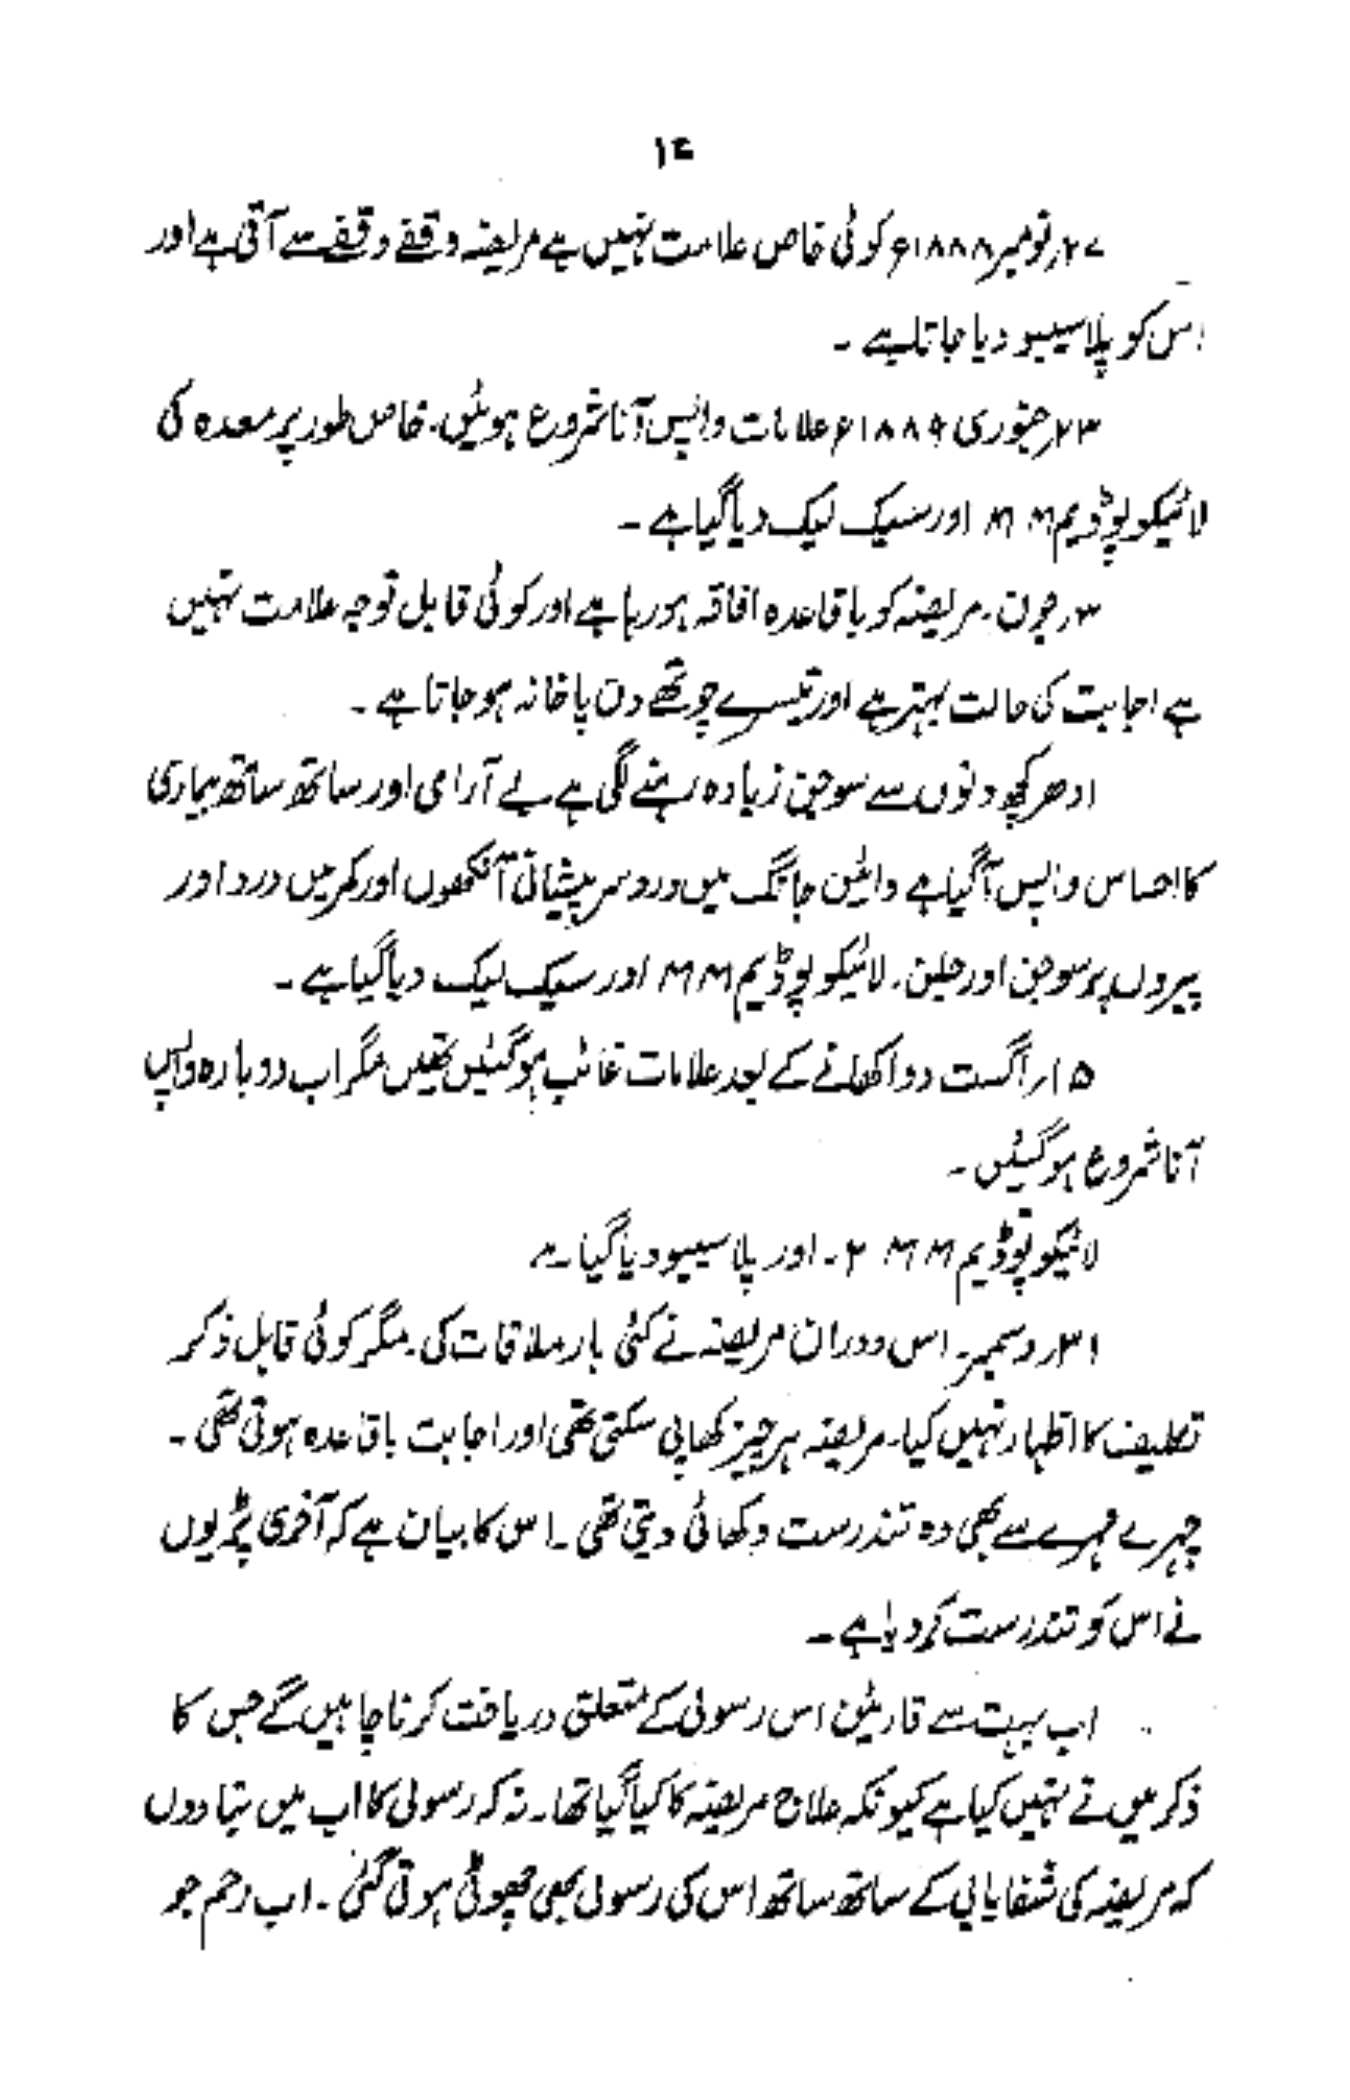 ۱۴
۲۷؍نومبر ۱۸۸۸ء کوئی خاص علامت نہیں ہے مریضہ وقفے وقفے سے آتی ہے اور
اس کو پلاسیبو دیا جاتا ہے ۔
۲۳؍جنوری ۱۸۸۹ء علامات واپس آنا شروع ہوئیں۔ خاص طور پر معدہ کی
لائیکوپوڈیم MM اور سیک لیک دیا گیا ہے ۔
۳؍جون۔ مریضہ کو باقاعدہ افاقہ ہو رہا ہے اور کوئی قابل توجہ علامت نہیں
ہے اجابت کی حالت بہتر ہے اور تیسرے چوتھے دن پاخانہ ہو جاتا ہے ۔
ادھر کچھ دنوں سے سوجن زیادہ رہنے لگی ہے بے آرامی اور ساتھ ساتھ بیماری
کا احساس واپس آگیا ہے دائیں جانگ میں درد سر پیشانی آنکھوں اور کمر میں درد اور
پیروں پر سوجن اور جلن۔ لائیکوپوڈیم MM اور سیک لیک دیا گیا ہے ۔
۱۵؍اگست دوا کھانے کے بعد علامات غائب ہوگئیں تھیں مگر اب دوبارہ واپس
آنا شروع ہوگئیں ۔
لائیکوپوڈیم MM ۲۔ اور پلاسیبو دیا گیا ہے
۳۱؍دسمبر۔ اس دوران مریضہ نے کئی بار ملاقات کی۔ مگر کوئی قابل ذکر
تکلیف کا اظہار نہیں کیا۔ مریضہ ہر چیز کھا پی سکتی تھی اور اجابت باقاعدہ ہوتی تھی ۔
چہرے مہرے سے بھی وہ تندرست دکھائی دیتی تھی ۔ اس کا بیان ہے کہ آخری پڑیوں
نے اس کو تندرست کر دیا ہے ۔
اب بہت سے قارئین اس رسولی کے متعلق دریافت کرنا چاہیں گے جس کا
ذکر میں نے نہیں کیا ہے کیونکہ علاج مریضہ کا کیا گیا تھا۔ نہ کہ رسولی کا اب میں بتا دوں
کہ مریضہ کی شفایابی کے ساتھ ساتھ اس کی رسولی بھی چھوٹی ہوتی گئی ۔ اب رحم جو